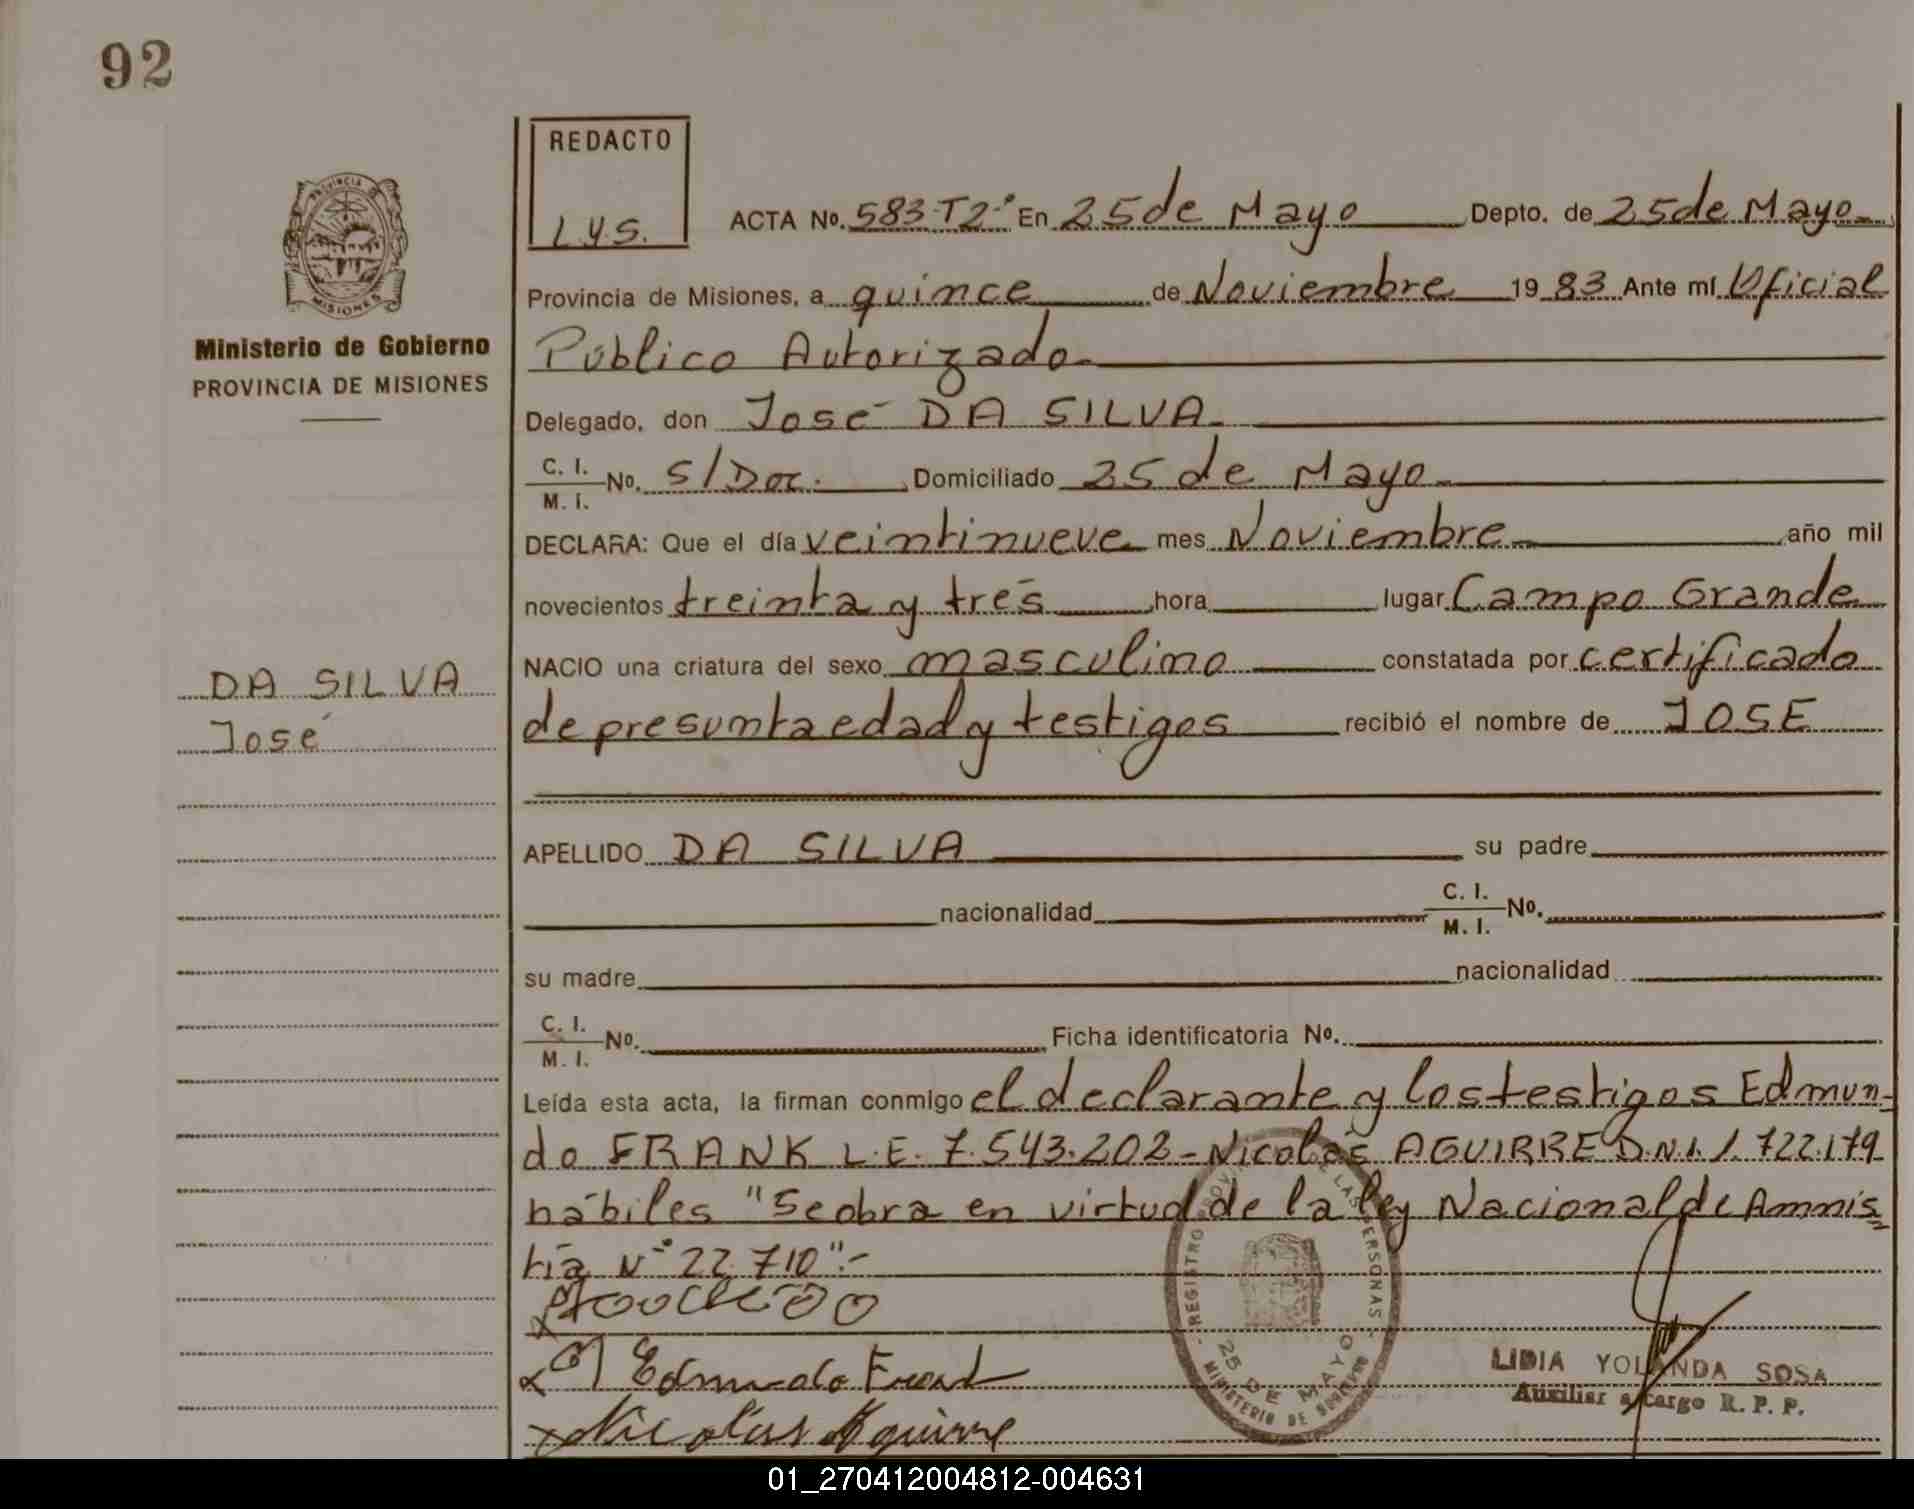 92
REDACTO
L.Y.S.
ACTA No. 583-T2º En 25 de Mayo Depto. de 25 de Mayo
Provincia de Misiones, a quince de Noviembre 1983 Ante mí Oficial
Público Autorizado
Delegado, don José DA SILVA
C. I. / M. I. No. S/Doc. Domiciliado 25 de Mayo
DECLARA: Que el día veintinueve mes Noviembre año mil
novecientos treinta y trés hora lugar Campo Grande
NACIO una criatura del sexo masculino constatada por certificado
de presunta edad y testigos recibió el nombre de JOSE
APELLIDO DA SILVA su padre
nacionalidad C. I. / M. I. No.
su madre nacionalidad
C. I. / M. I. No. Ficha identificatoria No.
Leída esta acta, la firman conmigo el declarante y los testigos Edmun-
do FRANK L.E. 7.543.202-Nicolás AGUIRRE D.N.I. 1.722.179
hábiles "Se obra en virtud de la ley Nacional de Amnis
tía Nº 22.710".-
Nicolás Aguirre
PROVINCIA DE
MISIONES
Ministerio de Gobierno
PROVINCIA DE MISIONES
DA SILVA
José
REGISTRO PROV. DE LAS PERSONAS
25 DE MAYO
MINISTERIO DE GOBIERNO
LIDIA YOLANDA SOSA
Auxiliar a cargo R. P. P.
01_270412004812-004631